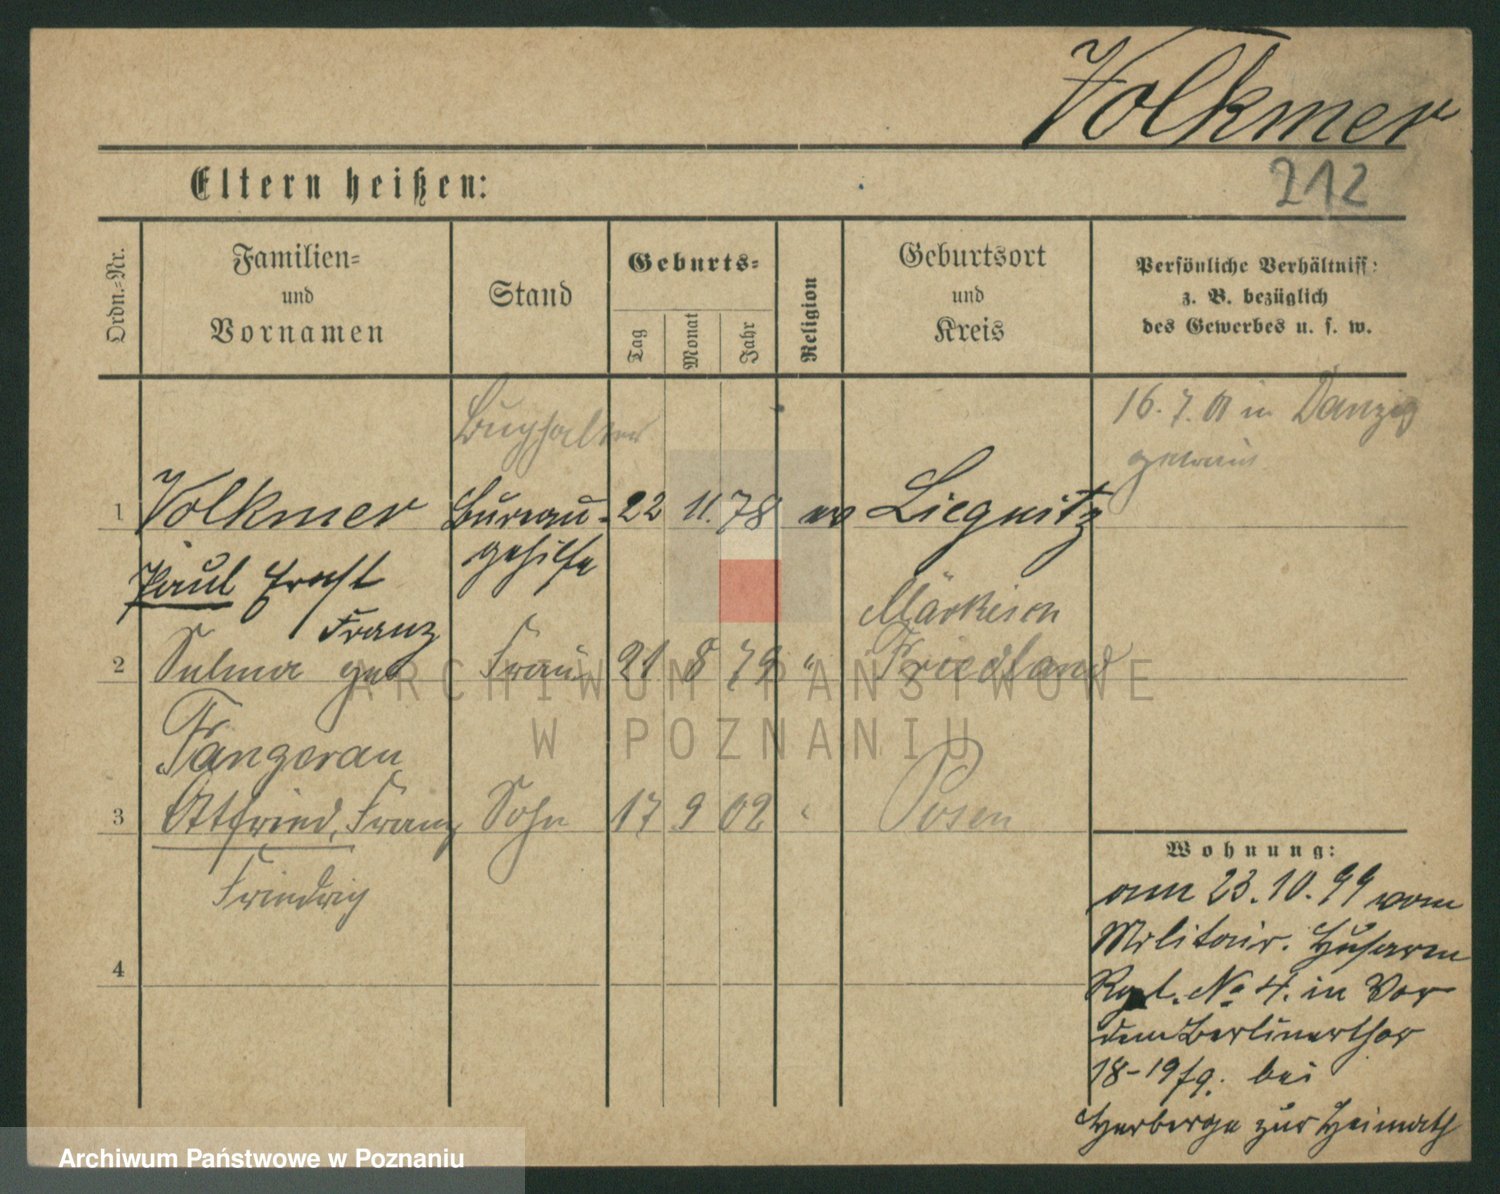 Volkmer
212
Eltern heißen:
Ordn.-Nr.
Familien- und Vornamen
Stand
Geburts-
Tag
Monat
Jahr
Religion
Geburtsort und Kreis
Persönliche Verhältniss:
z. B. bezüglich
des Gewerbes u. s. w.
Buchhalter
16. 7. 01 in Danzig
1 Volkmer Bureau- 22 11. 78 ev Liegnitz
Paul Ernst gehilfe
Franz
Märkisch
2 Selma geb Frau 21 8 79 " Friedland
Fangerau
3 Ottfried, Franz Sohn 17 9 02 " Posen
Friedrich
4
Wohnung:
am 23. 10. 99 vom
Militair. Husaren
Rgt. No 4. in Vor
dem Berlinerthor
18-19 bei
Herberge zur Heimath
ARCHIWUM PAŃSTWOWE
W POZNANIU
Archiwum Państwowe w Poznaniu